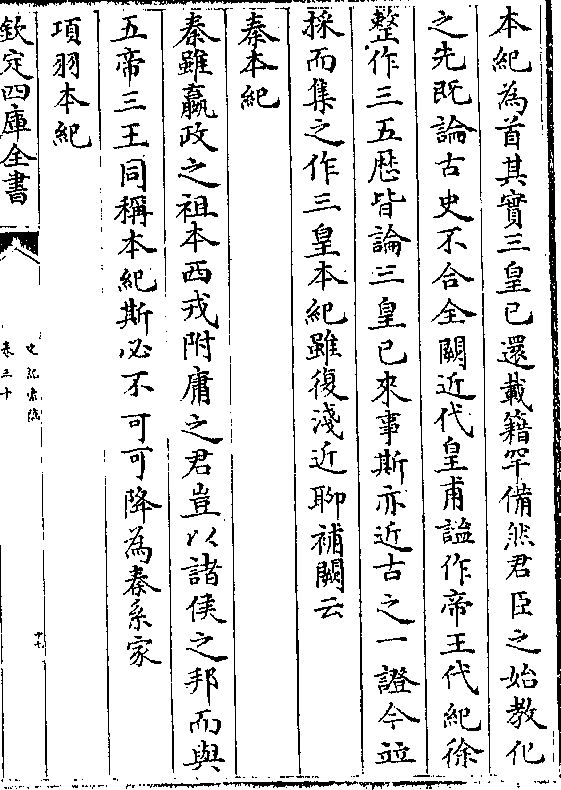 本紀為首其實三皇已還載籍罕備然君臣之始教化
之先既論古史不合全闕近代皇甫謐作帝王代紀徐
整作三五厯皆論三皇已來事斯亦近古之一證今竝
採而集之作三皇本紀雖復淺近聊補闕云
秦本紀
秦雖嬴政之祖本西戎附庸之君豈以諸侯之邦而與
五帝三王同稱本紀斯必不可可降為秦系家
項羽本紀
欽定四庫全書
史記索隱
卷三十